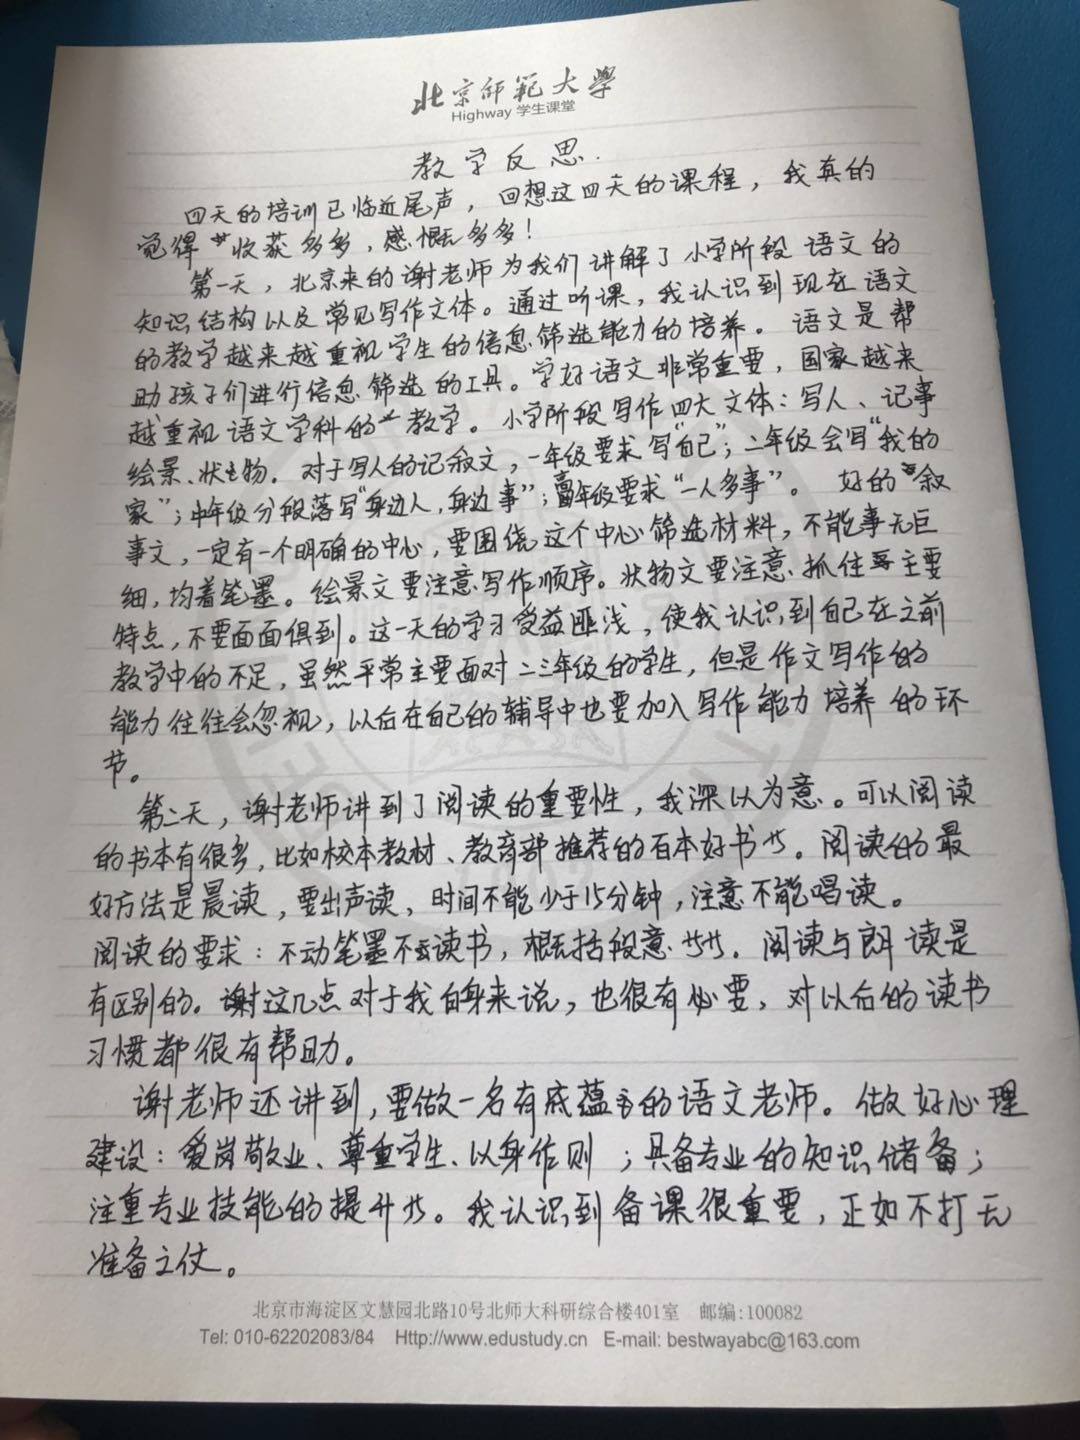 北京师范大学
Highway 学生课堂
教学反思.
四天的培训已临近尾声，回想这四天的课程，我真的
觉得收获多多，感慨多多！
第一天，北京来的谢老师为我们讲解了小学阶段语文的
知识结构以及常见写作文体。通过听课，我认识到现在语文
的教学越来越重视学生的信息筛选能力的培养。语文是帮
助孩子们进行信息筛选的工具。学好语文非常重要，国家越来
越重视语文学科的教学。小学阶段写作四大文体：写人、记事
绘景、状物。对于写人的记叙文，一年级要求写“自己”；二年级会写“我的
家”；中年级分段落写“身边人，身边事”；高年级要求“一人多事”。好的叙
事文，一定有一个明确的中心，要围绕这个中心筛选材料，不能事无巨
细，均着笔墨。绘景文要注意写作顺序。状物文要注意抓住主要
特点，不要面面俱到。这一天的学习受益匪浅，使我认识到自己在之前
教学中的不足，虽然平常主要面对二三年级的学生，但是作文写作的
能力往往会忽视，以后在自己的辅导中也要加入写作能力培养的环
节。
第二天，谢老师讲到了阅读的重要性，我深以为意。可以阅读
的书本有很多，比如校本教材、教育部推荐的百本好书等。阅读的最
好方法是晨读，要出声读，时间不能少于15分钟，注意不能唱读。
阅读的要求：不动笔墨不读书，概括段意等等。阅读与朗读是
有区别的。谢这几点对于我自身来说，也很有必要，对以后的读书
习惯都很有帮助。
谢老师还讲到，要做一名有底蕴的语文老师。做好心理
建设：爱岗敬业、尊重学生、以身作则；具备专业的知识储备；
注重专业技能的提升等。我认识到备课很重要，正如不打无
准备之仗。
北京市海淀区文慧园北路10号北师大科研综合楼401室 邮编:100082
Tel: 010-62202083/84 Http://www.edustudy.cn E-mail: bestwayabc@163.com